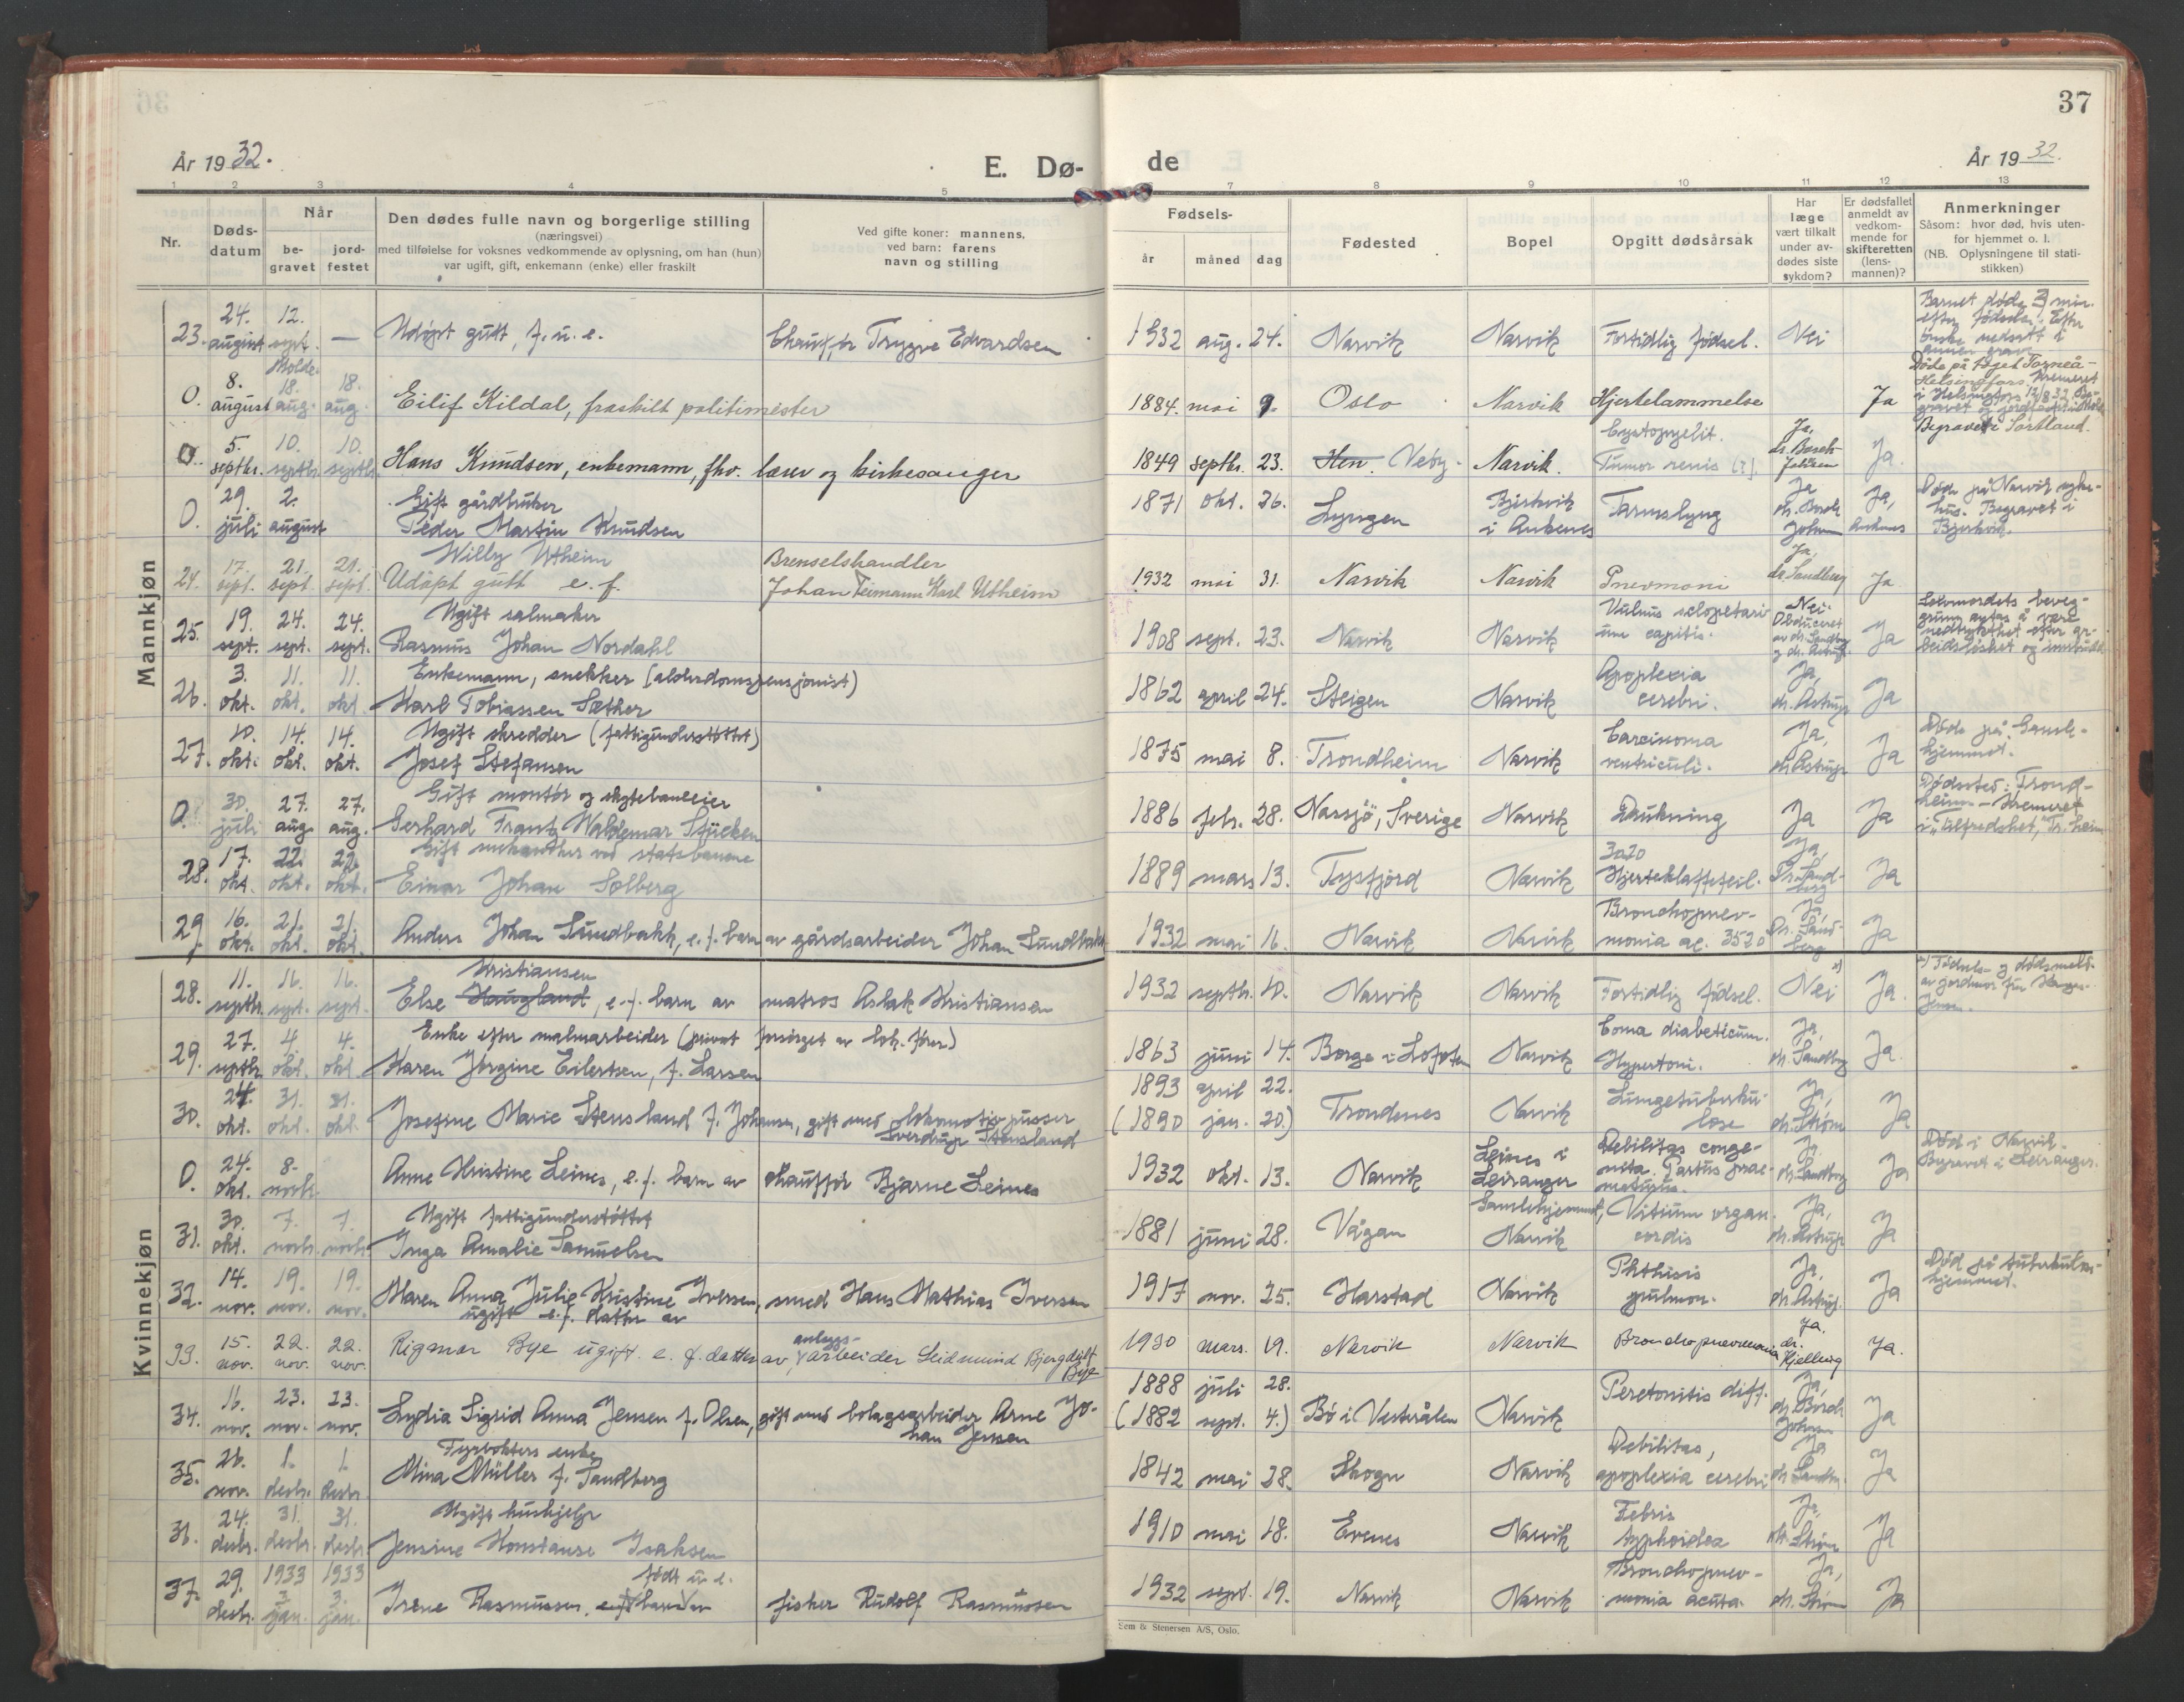 37
År 1932.
E. Dø- de
År 1932.
1 2 3 4 5 7 8 9 10 11 12 13
Nr.
Døds-datum
Når
be-gravet
jord-festet
Den dødes fulle navn og borgerlige stilling
(næringsvei)
med tilføielse for voksnes vedkommende av oplysning, om han (hun)
var ugift, gift, enkemann (enke) eller fraskilt
Ved gifte koner: mannens,
ved barn: farens
navn og stilling
Fødsels-
år måned dag
Fødested
Bopel
Opgitt dødsårsak
Har læge vært tilkalt under av-dødes siste sykdom?
Er dødsfallet anmeldt av vedkom-mende for skifteretten (lens-mannen)?
Anmerkninger
Såsom: hvor død, hvis uten-
for hjemmet o. l.
(NB. Oplysningene til stati-
stikken)
Mannkjøn
23. 24. august 12. sept. — Udøpt gutt, f. u. e. Chauffør Trygve Edvardsen 1932 aug. 24. Narvik Narvik Fortidlig fødsel. Nei Barnet døde 3 min. efter fødselen. Efter ønske nedsatt i annen grav.
0. 8. august Molde. 18. aug. 18. aug. Eilif Kildal, fraskilt politimester 1884. mai 9. Oslo Narvik Hjertelammelse Ja Døde på toget Torneå-Helsingfors. Kremeret i Helsingfors 12/8 32.
0. 5. septbr. 10. septbr. 10. septbr. Hans Knudsen, enkemann, fhv. lærer og kirkesanger 1849 septbr. 23. Hen. Narvik. Cystopyelit. Tumor renis (?). Ja, dr. Borch Johnsen Ja. Begravet i Sortland.
0. 29. juli 2. august Gift gårdbruker
Peder Martin Knudsen 1871 okt. 26. Lyngen Bjerkvik i Ankenes Tarmslyng Ja dr. Borch Johnsen Ja, Ankenes Døde på Narvik syke-hus. Begravet i Bjerkvik.
24. 17. sept. 21. sept. 21. sept. Willy Utheim
Udøpt gutt e. f. Brenselshandler
Johan Teimann Karl Utheim 1932 mai 31. Narvik Narvik Pnevmoni Ja, dr. Sandberg Ja.
25. 19. sept. 24. sept. 24. sept. Ugift salmaker
Rasmus Johan Nordahl 1908 sept. 23. Narvik Narvik Vulnus sclopetari-um capitis. Nei. Obduceret av dr. Sandberg og dr. Astrup. Ja Selvmordets beveg-grunn antas å være nedtrykthet efter ar-beidsløshet og
26. 3. okt. 11. okt. 11. okt. Enkemann, snekker (alderdomspensjonist)
Karl Tobiassen Sæther 1862 april 24. Steigen Narvik Apoplexia cerebri. Ja, dr. Astrup Ja
27. 10. okt. 14. okt. 14. okt. Ugift skredder (fattigunderstøttet)
Josef Stefansen 1875 mai 8. Trondheim Narvik Carcinoma ventriculi. Ja, dr. Astrup Ja Døde på Gamle-hjemmet.
0. 30. juli 27. aug. 27. aug. Gift montør og skytebaneeier
Gerhard Frantz Waldemar Stücken 1886 febr. 28. Nassjö, Sverige Narvik Drukning Ja Ja Dødssted: Trond-heim - Kremeret i "Tilfredshet", Tr. heim
28. 17. okt. 22. okt. 22. okt. Gift snekker ved statsbanene
Einar Johan Solberg 1889 mars 13. Tysfjord Narvik Hjerteklaffefeil. Ja, Dr. Sand-berg Ja
29. 16. okt. 21. okt. 21. okt. Anders Johan Sundbakk, e. f. barn av gårdsarbeider Johan Sundbakk 1932 mai 16. Narvik Narvik Bronchopnev-monia ac. 3520 Ja, Dr. Sand-berg Ja
Kvinnekjøn
28. 11. septbr. 16. sept. 16. sept. Kristiansen
Else Haugland, e. f. barn av matros Aslak Kristiansen 1932 septbr. 10. Narvik Narvik Fortidlig fødsel. Nei x) Ja. x) Fødsels- og dødsmeld. av jordmor fru
29. 27. septbr. 4. okt. 4. okt. Enke efter malmarbeider (privat forsørget av lok. fører)
Karen Jørgine Eilertsen, f. Larsen 1863 juni 14. Borge i Lofoten Narvik Coma diabeticum. Hypertoni. Ja, dr. Sandberg Ja.
30. 24. okt. 31. okt. 31. okt. Josefine Marie Stensland f. Johansen, gift med lokomotivpusser Sverdrup Stensland 1893 april 22. (1890 jan. 20.) Trondenes Narvik Lungetuberku-lose Ja, dr. Strøm Ja
0. 24. okt. 8. novbr. Anne Kristine Leines, e. f. barn av chauffør Bjarne Leines 1932 okt. 13. Narvik Leines i Leiranger Debilitas conge-nita. Partus prae-maturus. Ja dr. Sandberg Ja Død i Narvik. Begravet i Leiranger.
31. 30. okt. 7. novbr. 7. novbr. Ugift fattigunderstøttet
Inga Amalie Samuelsen 1881 juni 28. Vågan Gamlehjemmet, Narvik Vitium organ. cordis Ja, dr. Astrup Ja
32. 14. nov. 19. nov. 19. nov. Maren Anna Julie Kristine Iversen, ugift e. f. datter av smed Hans Mathias Iversen 1917 nov. 25. Harstad Narvik Phthisis pulmon. Ja, dr. Astrup. Ja Død på tuberkulose-hjemmet.
33. 15. nov. 22. nov. 22. nov. Rigmor Bye ugift. e. f. datter av anleggs-arbeider Leidmund Bye 1930 mars. 19. Narvik Narvik Bronchopnevmonia Ja. dr. Kjelling Ja.
34. 16. nov. 23. nov. 23. nov. Lydia Sigrid Anna Jensen f. Olsen, gift med bolagsarbeider Arne Jo-han Jensen 1888 juli 28. (1882 sept. 4.) Bø i Vesterålen Narvik Peretonitis diff. Ja, dr. Borch Johnsen Ja
35. 26. nov. 1. desbr. 1. desbr. Fyrbøters enke
Mina Müller f. Sandberg 1842 mai 28. Skogn Narvik Debilitas, apoplexia cerebri Ja dr. Sandb. Ja
36. 24. desbr. 31. desbr. 31. desbr. Ugift hushjelp
Jensine Konstanse Isaksen 1910 mai 18. Evenes Narvik Febris typhoidea Ja, dr. Strøm Ja
37. 29. desbr. 1933 3. jan. 1933 3. jan. Irene Rasmussen, født u. e. barn av fisker Rudolf Rasmussen 1932 sept. 19. Narvik Narvik Bronchopnev-monia acuta. Ja, dr. Strøm Ja
Sem & Stenersen A/S, Oslo.